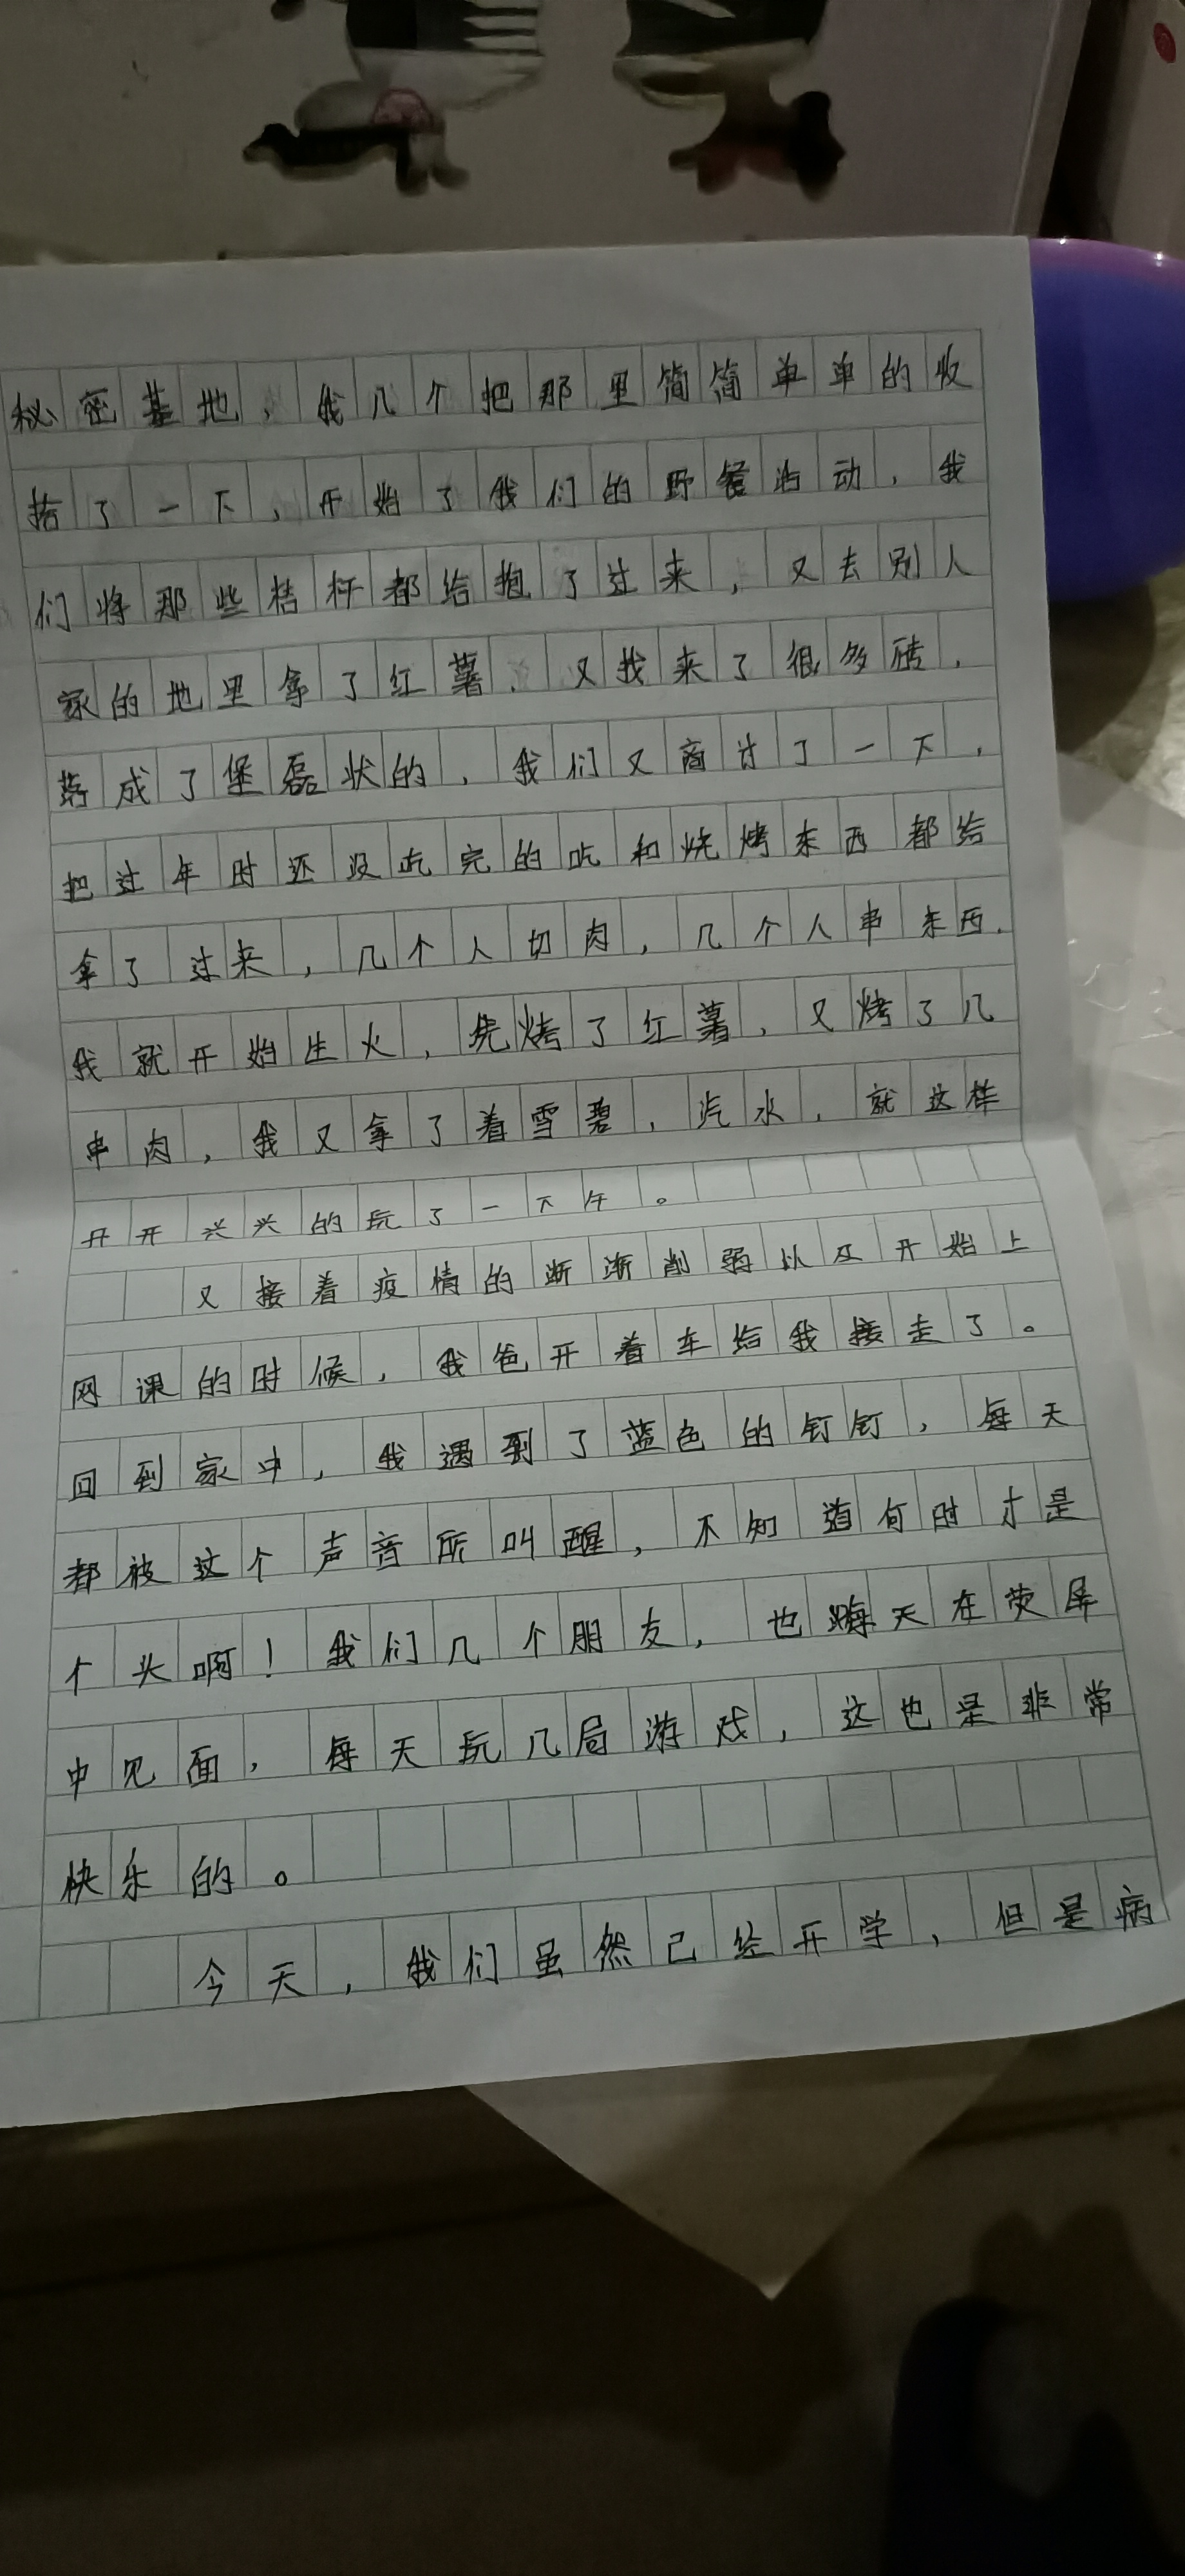 秘密基地，我几个把那里简简单单的收
拾了一下，开始了我们的野餐活动，我
们将那些桔杆都给抱了过来，又去别人
家的地里拿了红薯，又找来了很多砖，
搭成了堡磊状的，我们又商讨了一下，
把过年时还没吃完的吃和烧烤东西都给
拿了过来，几个人切肉，几个人串东西，
我就开始生火，先烤了红薯，又烤了几
串肉，我又拿了着雪碧，汽水，就这样
开开兴兴的玩了一下午。
又接着疫情的渐渐削弱以及开始上
网课的时候，我爸开着车给我接走了。
回到家中，我遇到了蓝色的钉钉，每天
都被这个声音所叫醒，不知道何时才是
个头啊！我们几个朋友，也每天在荧屏
中见面，每天玩几局游戏，这也是非常
快乐的。
今天，我们虽然已经开学，但是病